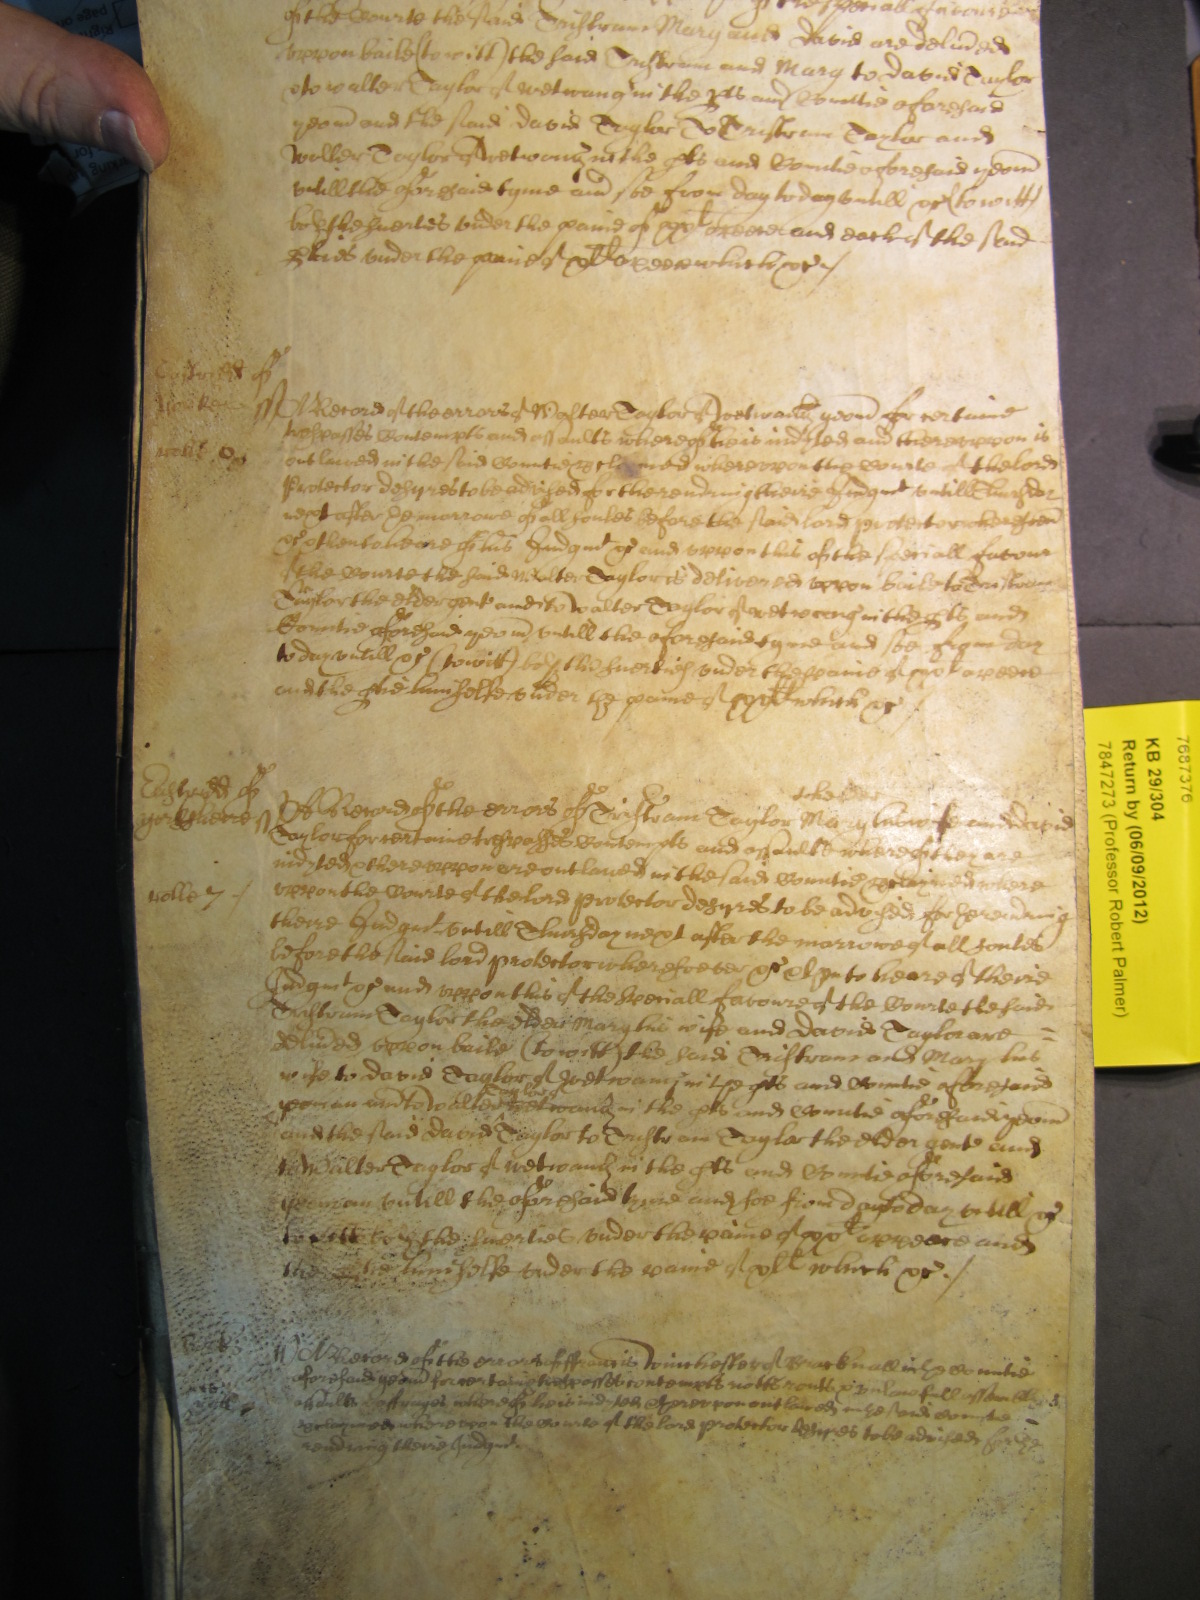 of the Courte the said Tristram Mary and David are delivded
uppon baile (to witt) the said Tristram and Mary to David Taylor
& to Walter Taylor of Wetwang in the pts and Countie aforesaid
yeom and the said David Taylor to Tristram Taylor and
Walter Taylor of Wetwang in the pts and Countie aforesaid yeom
untill the aforesaid tyme and soe from day to day untill &c (to witt)
both the suerties under the paine of xxl apeece and each of the said
under the paine of xll apeece which &c /
Eastridd of
Yorkes ss A Record of the errors of Walter Taylor of Wetwang yeom for certaine
trespasses Contempts and assaults whereof he is indicted and thereuppon is
rolle
outlawed in the said Countie whereuppon the Courte of the lord
Protector desyres to be advised for the rendring theire Judgmt untill Thursday
next after the morrowe of all soules before the said lord protector wheresoever
&c then to heare of his Judgmt &c and uppon this of the speciall favour
of the Courte the said Walter Taylor is delivered uppon baile to Tristram
Taylor the elder gent and to Walter Taylor of Wetwang in the pts and
Countie aforesaid yeom untill the aforesaid tyme and soe from day
to day untill &c (to witt) both the suerties under the paine of xxl apeece
and the ptie himselfe under the paine of which &c /
Eastridd of
yorkshiere ss A Record of the errors of Tristram Taylor the elder Mary his wife and David
Taylor for certaine trespasses Contempts and assaults whereof they are
indicted & thereuppon are outlawed in the said Countie where
rolle 7
uppon the Courte of the lord protector desyres to be advised for the rendring
theire Judgmt untill Thursday next after the morrowe of all soules
before the said lord protector wheresoever &c then to heare of theire
Judgmt &c and uppon this of the speciall favoure of the Courte the said
Tristram Taylor the elder Mary his wife and David Taylor are
delivded uppon baile (to witt) the said Tristram and Mary his
wife to David Taylor of Wetwang in the pts and Countie aforesaid
yeoman and to Walter Taylor of Wetwang in the pts and Countie aforesaid yeom
and the said David Taylor to Tristram Taylor the elder gent and
to Walter Taylor of Wetwang in the pts and Countie aforesaid
yeoman untill the aforesaid tyme and soe from day to day untill &c
to witt both the suerties under the paine of xxl apeece and
the ptie himselfe under the paine of xll which &c /
A Record of the errors of Francis Winchester of Bracknall in the Countie
aforesaid yeom for certaine trespasses contempts riotts routs unlawfull assemblies
assaults & affrayes whereof he is indicted & thereuppon outlawed in the said Countie
whereuppon the Courte of the lord protector desyres to be advised for the
rendring theire Judgmt.
7687376
KB 29/304
Return by (06/09/2012)
7847273 (Professor Robert Palmer)